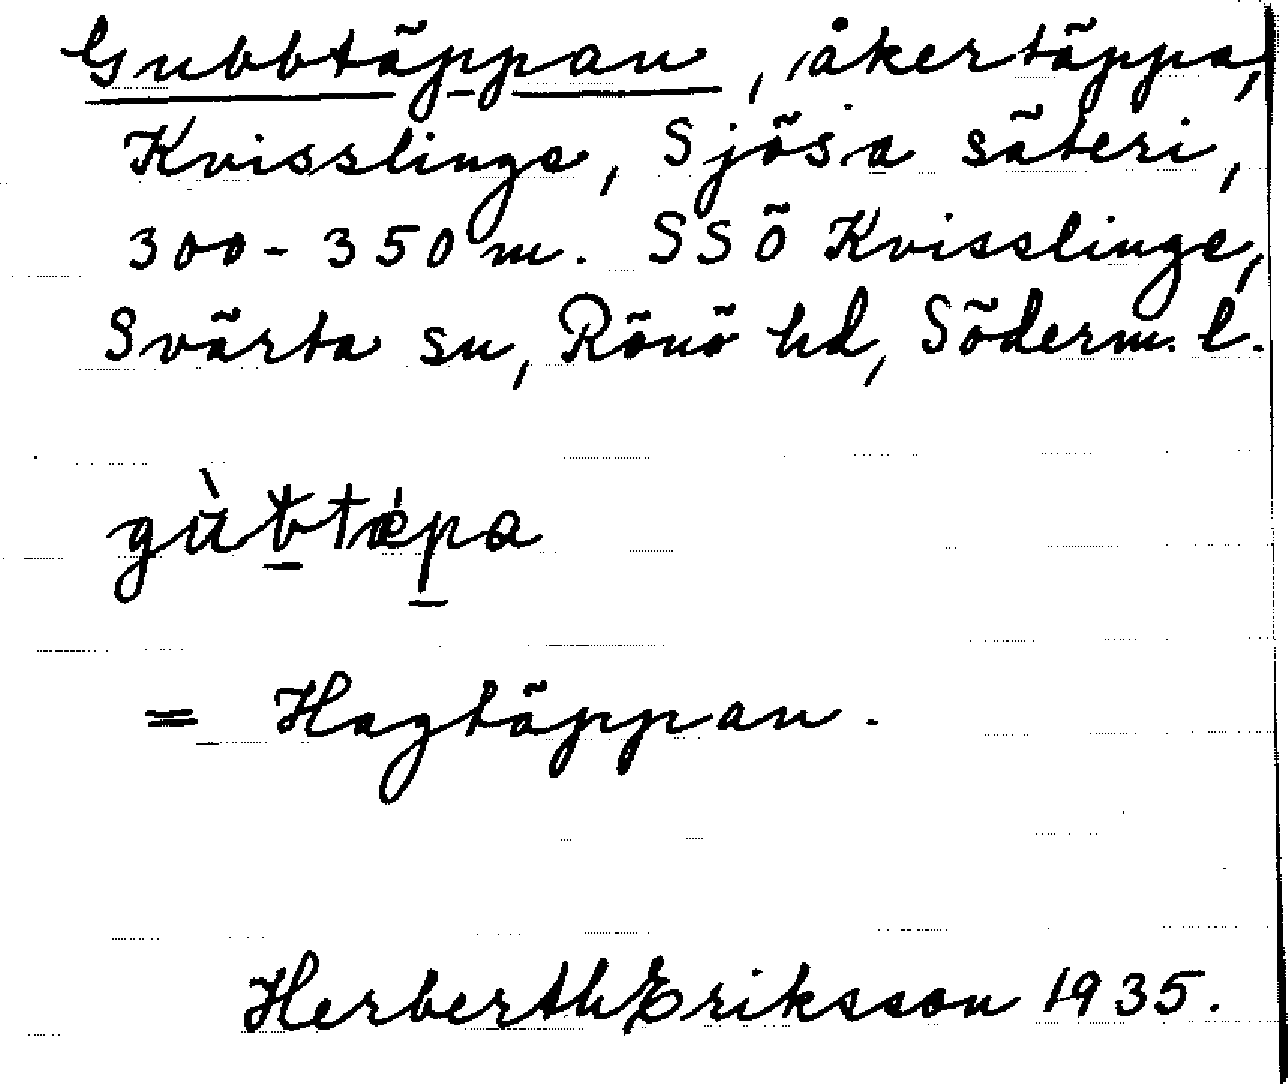 Gubbtäppan, åkertäppa,
Kvisslinge, Sjösa säteri,
300-350 m. SSÖ Kvisslinge,
Svärta sn, Rönö hd, Söderm. l.
gù̀btæpa
= Hagtäppan.
Herberth Eriksson 1935.